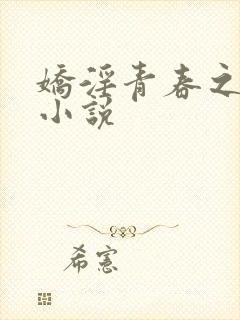 嬌淫青春之
小說
希憲